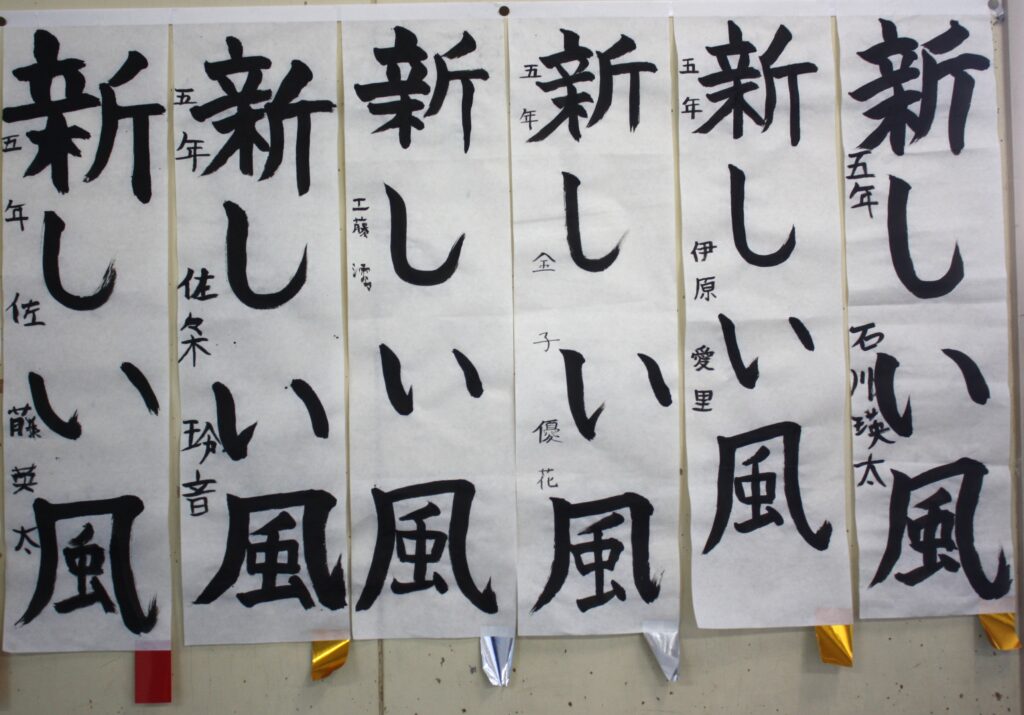 新しい風
五年 石川瑛太
新しい風
五年 伊原 愛里
新しい風
五年 金子 優花
新しい風
工藤
新しい風
五年 佐々木 玲音
新しい風
五年 佐藤 英太